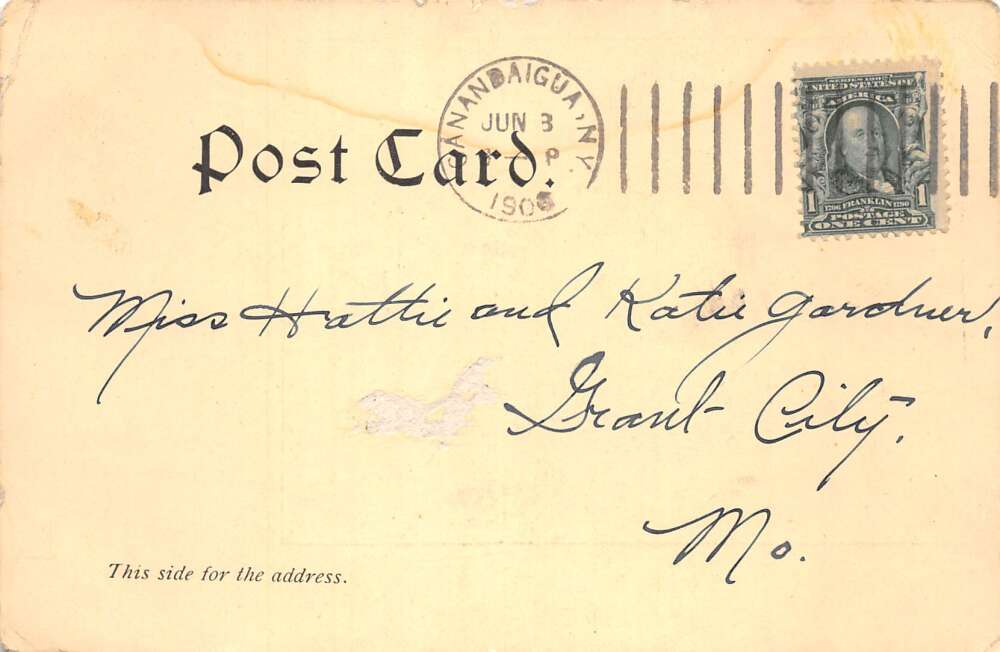 CANANDAIGUA, N.Y.
JUN 3
P
190
SERIES 1902
UNITED STATES OF
AMERICA
1 1
1706 FRANKLIN 1790
POSTAGE
ONE CENT
Post Card.
Miss Hattie and Katie Gardner,
Grant City,
Mo.
This side for the address.